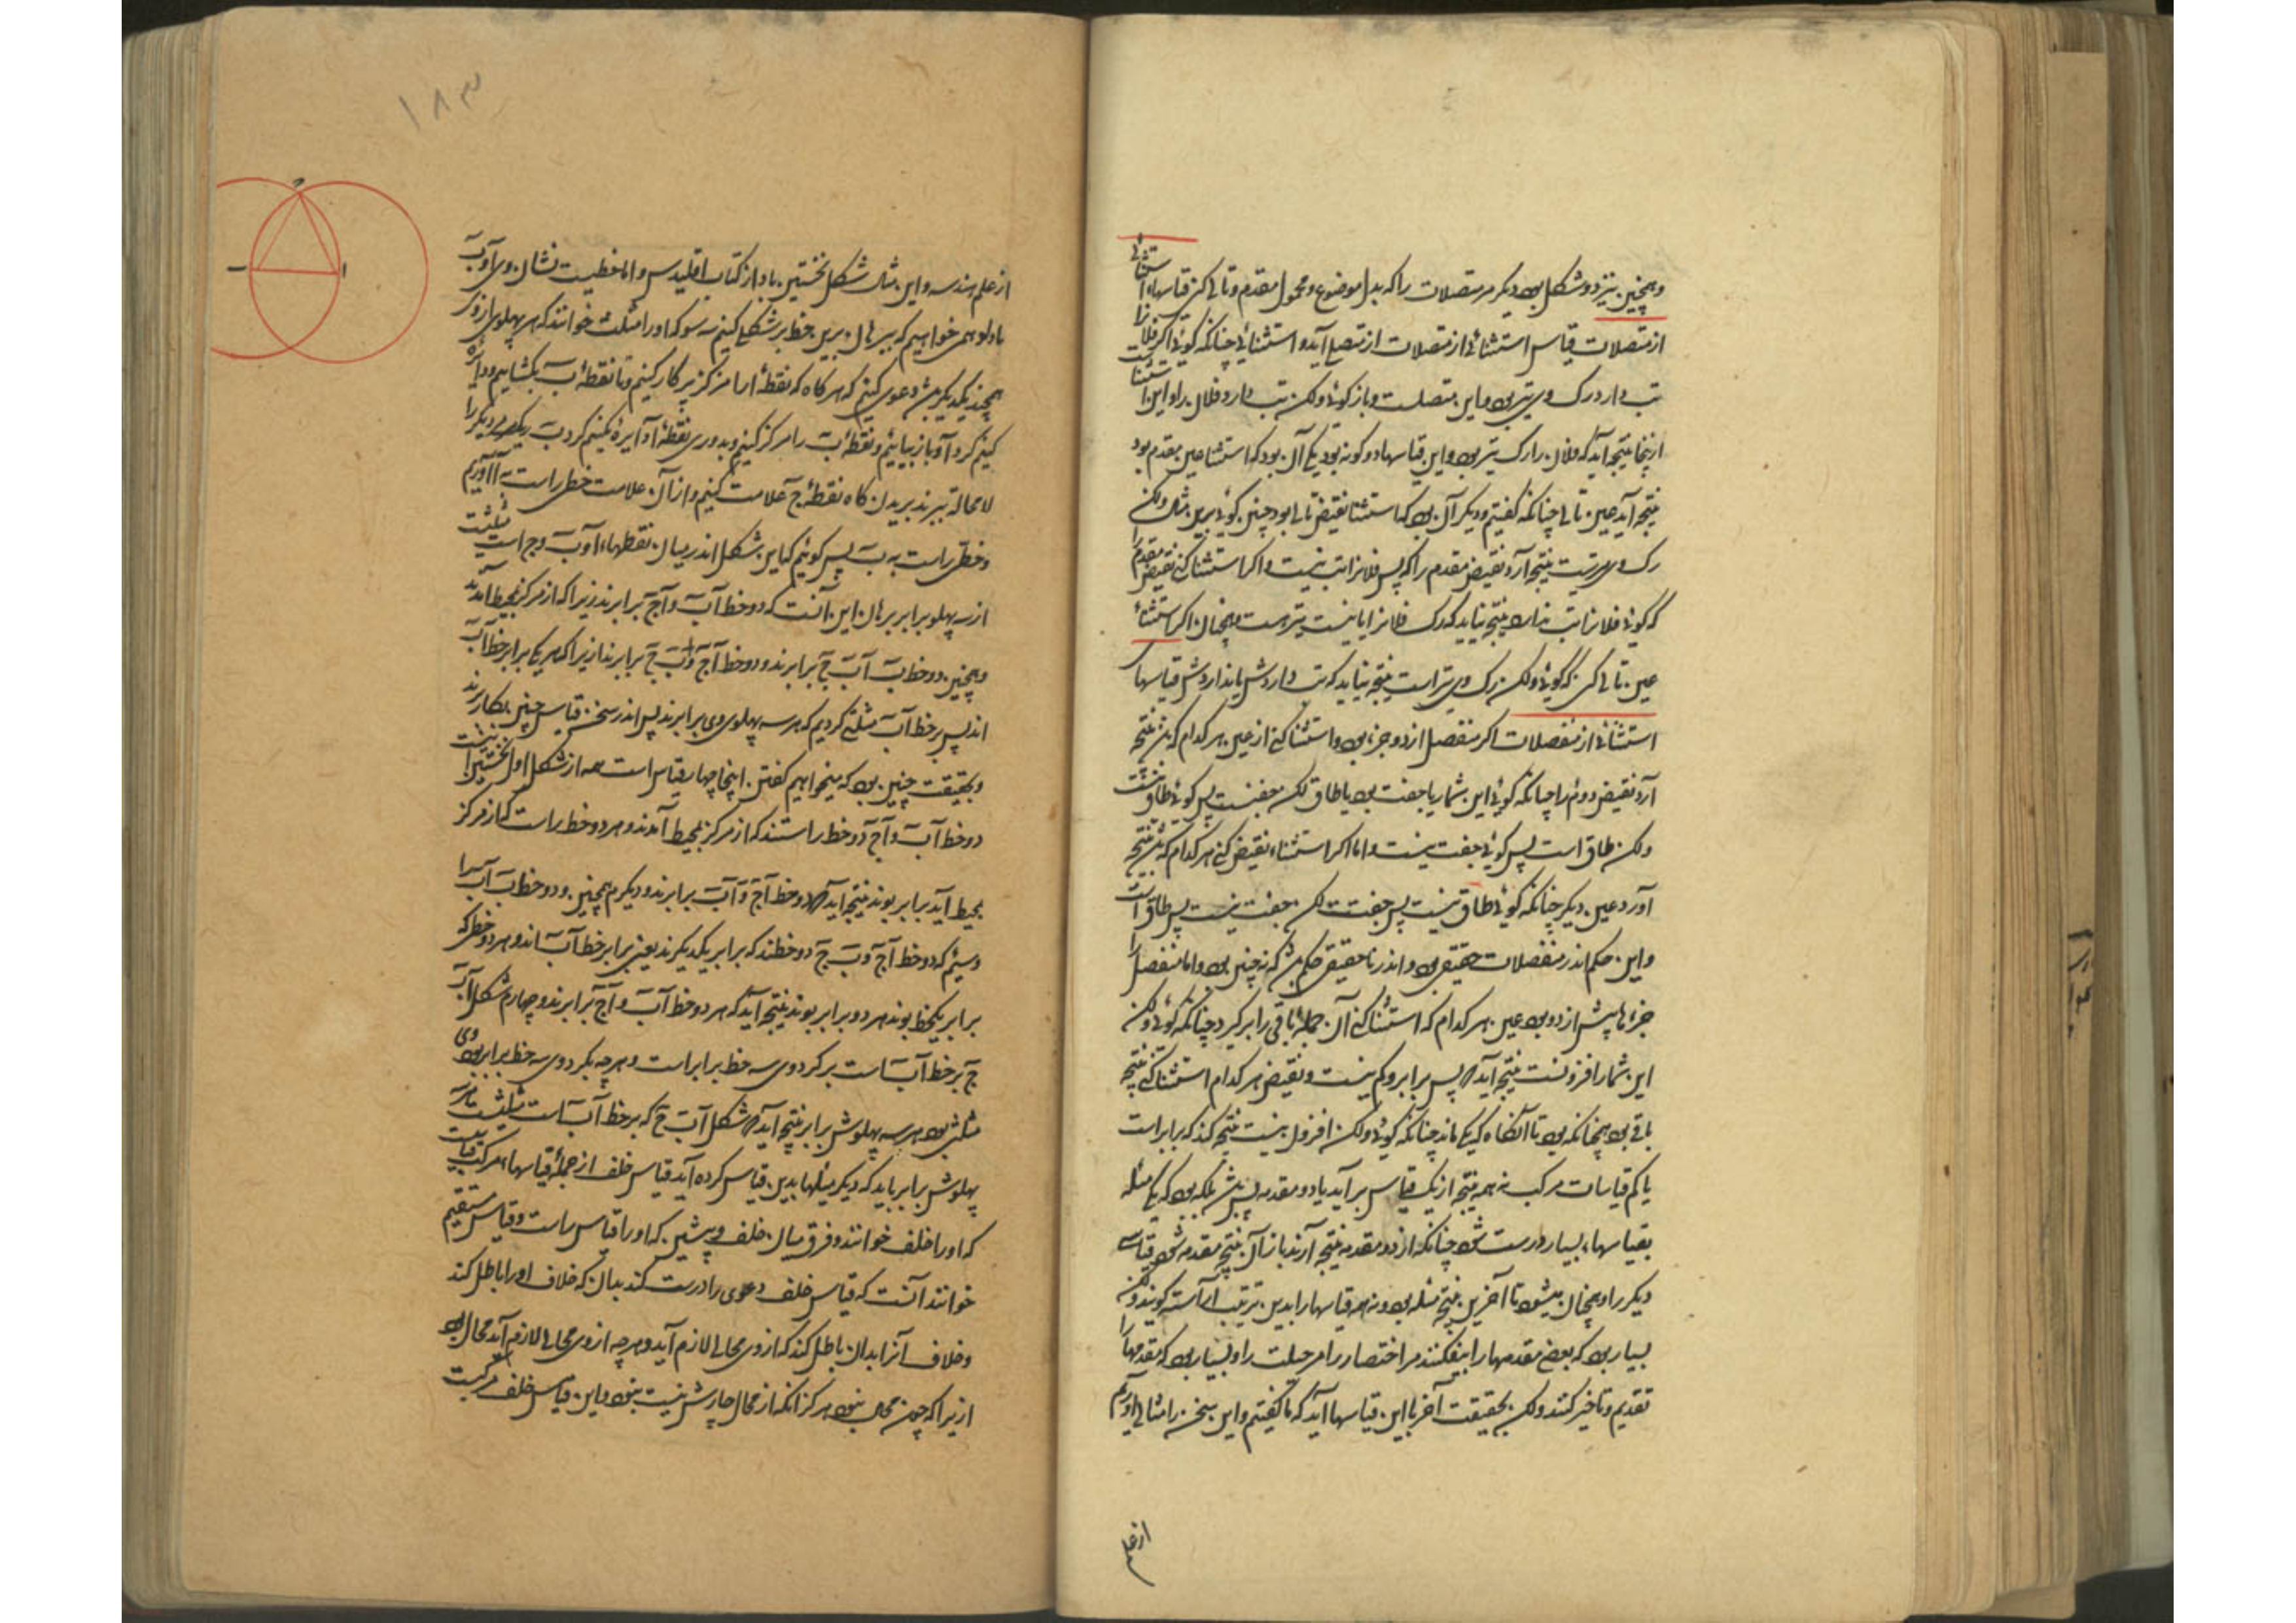 وهمچنین نیز دو شکل بود دیگر مر متصلات را که بدل موضوع و محمول مقدم و تالی کنی قیاسهاء استثنائی
از متصلات قیاس استثنائی از متصلات از متصلی آید و استثنائی چنانکه گوئی اگر فلان را
تب دارد رگ وی تیز بود و این متصلست و باز گوئی ولکن تب دارد فلان را و این استثنا است
ازینجا نتیجه آید که فلان را رگ تیز بود و این قیاسها دو گونه بود یکی آن بود که استثنا عین مقدم بود
نتیجه آید عین تالی چنانکه گفتیم و دیگر آن بود که استثنا نقیض تالی بود چنین گوئی برین مثال ولکن
رگ وی تیز نیست نتیجه آرد نقیض مقدم را که پس فلانرا تب نیست و اگر استثنا کنی نقیض مقدم را
که گوئی فلانرا تب ندارد نتیجه نیاید که رگ فلانرا یا نیست تیز هست و همچنان اگر استثناء
عین تالی کنی که گوئی ولکن رگ وی تیز است نتیجه نیاید که تب داردش یا نداردش قیاسهای
استثنائی از منفصلات اگر منفصل از دو جزء بود و استثنا کنی از عین هر کدام که بود نتیجه
آرد نقیض دوئم را چنانکه گوئی این شمار یا جفت بود یا طاق لکن جفتست پس گوئی طاق نیست
ولکن طاق است پس گوئی جفت نیست و اما اگر استثناء نقیض کنی هر کدام که بود نتیجه
آورد عین دیگر چنانکه گوئی طاق نیست پس جفتست لکن جفت نیست پس طاق است
و این حکم اندر منفصلات حقیقی بود و اندر نا حقیقی حکم باشد که نه چنین بود و اما منفصل را
جزءها بیش از دو بود عین هر کدام که استثنا کنی آن جمله باقی را برگیرد چنانکه گوئی ولکن
این شمار افزونست نتیجه آید که پس برابر و کم نیست و نقیض هر کدام استثنا کنی نتیجه
باقی بود همچنانکه بود تا آنگاه که یکی ماند چنانکه گوئی ولکن افزون نیست نتیجه کند که برابر است
یا کم قیاسات مرکب نه همه نتیجه از یک قیاس برآید یا دو مقدمه بس باشد بلکه بود که یکی مسئله
بقیاسهاء بسیار درست شود چنانکه از دو مقدمه نتیجه آرند باز آن نتیجه مقدمه شود قیاسی
دیگر را و همچنان میشود تا آخرین نتیجه مسئله بود و نه همه قیاسها را بدین ترتیب آراسته گویند ولکن
بسیار بود که بعضی مقدمها را بیفکنند مر اختصار را مر حیلت را و بسیار بود که مقدمها را
تقدیم و تاخیر کنند ولکن بحقیقت آخر با این قیاسها آید که ما گفتیم و این سخن را مثالی آوریم
از علم
۱۸۳
از علم هندسه و این مثال شکل نخستین باد از کتاب اقلیدس و اما خطیست نشان وی آ و ب
ما را و همی خواهیم که ببرهان برین خط بر شکلی کنیم سه سو که او را مثلث خوانند که هر پهلوی از وی
همچند یکدیگر باشد دعوی کنیم که هرگاه که نقطه ا را مرکز پرگار کنیم و تا نقطه ب بگشاییم و دایره
کنیم گرد آ و باز بیائیم و نقطه ب را مرکز کنیم و بدوری نقطه ا دایره کنیم گرد ب یکدیگر را
لا محاله ببرند بریدن گاه نقطه ج علامت کنیم و از آن علامت خطی راست به آ آوریم
و خطی راست به ب پس گوئیم که این شکل اندر میان نقطهاء آ و ب و ج است مثلثیست
از سه پهلو برابر برهان این آنست که دو خط آب و آج برابرند زیرا که از مرکز بمحیط آمدند
و همچنین دو خط ب آ ب ج برابرند و دو خط آج و ب ج برابرند زیرا که هر یکی برابر خط آب
اند پس بر خط آب مثلثی کردیم که هر سه پهلوی وی برابرند پس اندر سخن قیاس چنین بکار برند
و بحقیقت چنین بود که میخواهیم گفتن اینجا چهار قیاس است همه از شکل اول نخستین اینست
دو خط آب و آج دو خط راستند که از مرکز بمحیط آمدند و هر دو خط راست که از مرکز
بمحیط آید برابر بوند نتیجه آید که دو خط آج و آب برابرند و دیگرم همچنین و دو خط ب آ ب ج را
و سیم که دو خط آج و ب ج دو خطند که برابر یکدیگرند یعنی برابر خط آب اند و هر دو خطی که
برابر یکخط بوند هر دو برابر بوند نتیجه آید که هر دو خط آب و آج برابرند و چهارم شکل آب
ج بر خط آب است بر گرد وی سه خط برابر است و هر چه بگرد وی سه خط برابر بود وی
مثلثی بود هر سه پهلوش برابر نتیجه آید که شکل آب ج که بر خط آب است مثلثیست هر سه
پهلوش برابر باید که دیگر مسئلها بدین قیاس کرده آید قیاس خلف از جمله قیاسهاء مرکب قیاسیست
که او را خلف خوانند و فرق میان خلف و پیشین که او را قیاس راست و قیاس مستقیم
خوانند آنست که قیاس خلف دعوی را درست کند بدان که خلاف او را باطل کند
و خلاف آنرا بدان باطل کند که از وی محالی لازم آید و هر چه از وی محالی لازم آید محال بود
ازیرا که چون محال نبود هرگز آنکه از محال چارش نیست نبود و این قیاس خلف مرکبست
ا
ب
ج